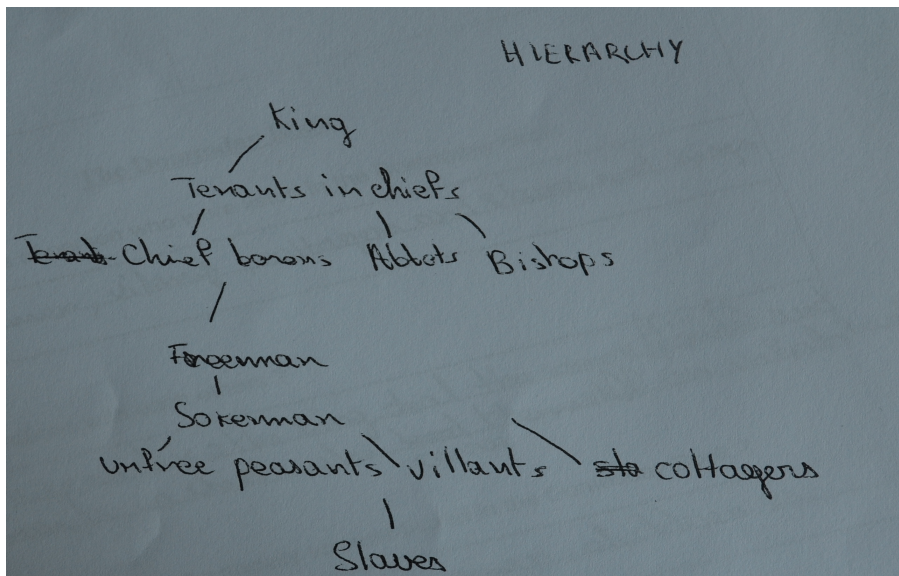 HIERARCHY
King
Tenants in chiefs
Chief barons Abbots Bishops
Freeman
Sokenman
unfree peasants villants cottagers
Slaves